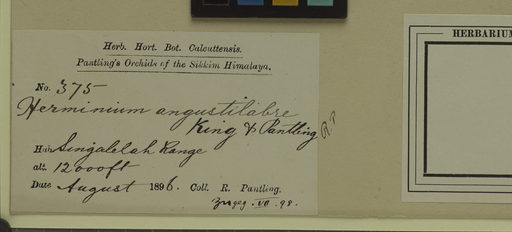 Herb. Hort. Bot. Calcuttensis.
Pantling's Orchids of the Sikkim Himalaya.
No. 375
Herminium angustilabre
King & Pantling R.P.
Hab. Singalelah Range
alt. 12000ft
Date August 1896. Coll. R. Pantling.
VII. 98.
HERBARIUM